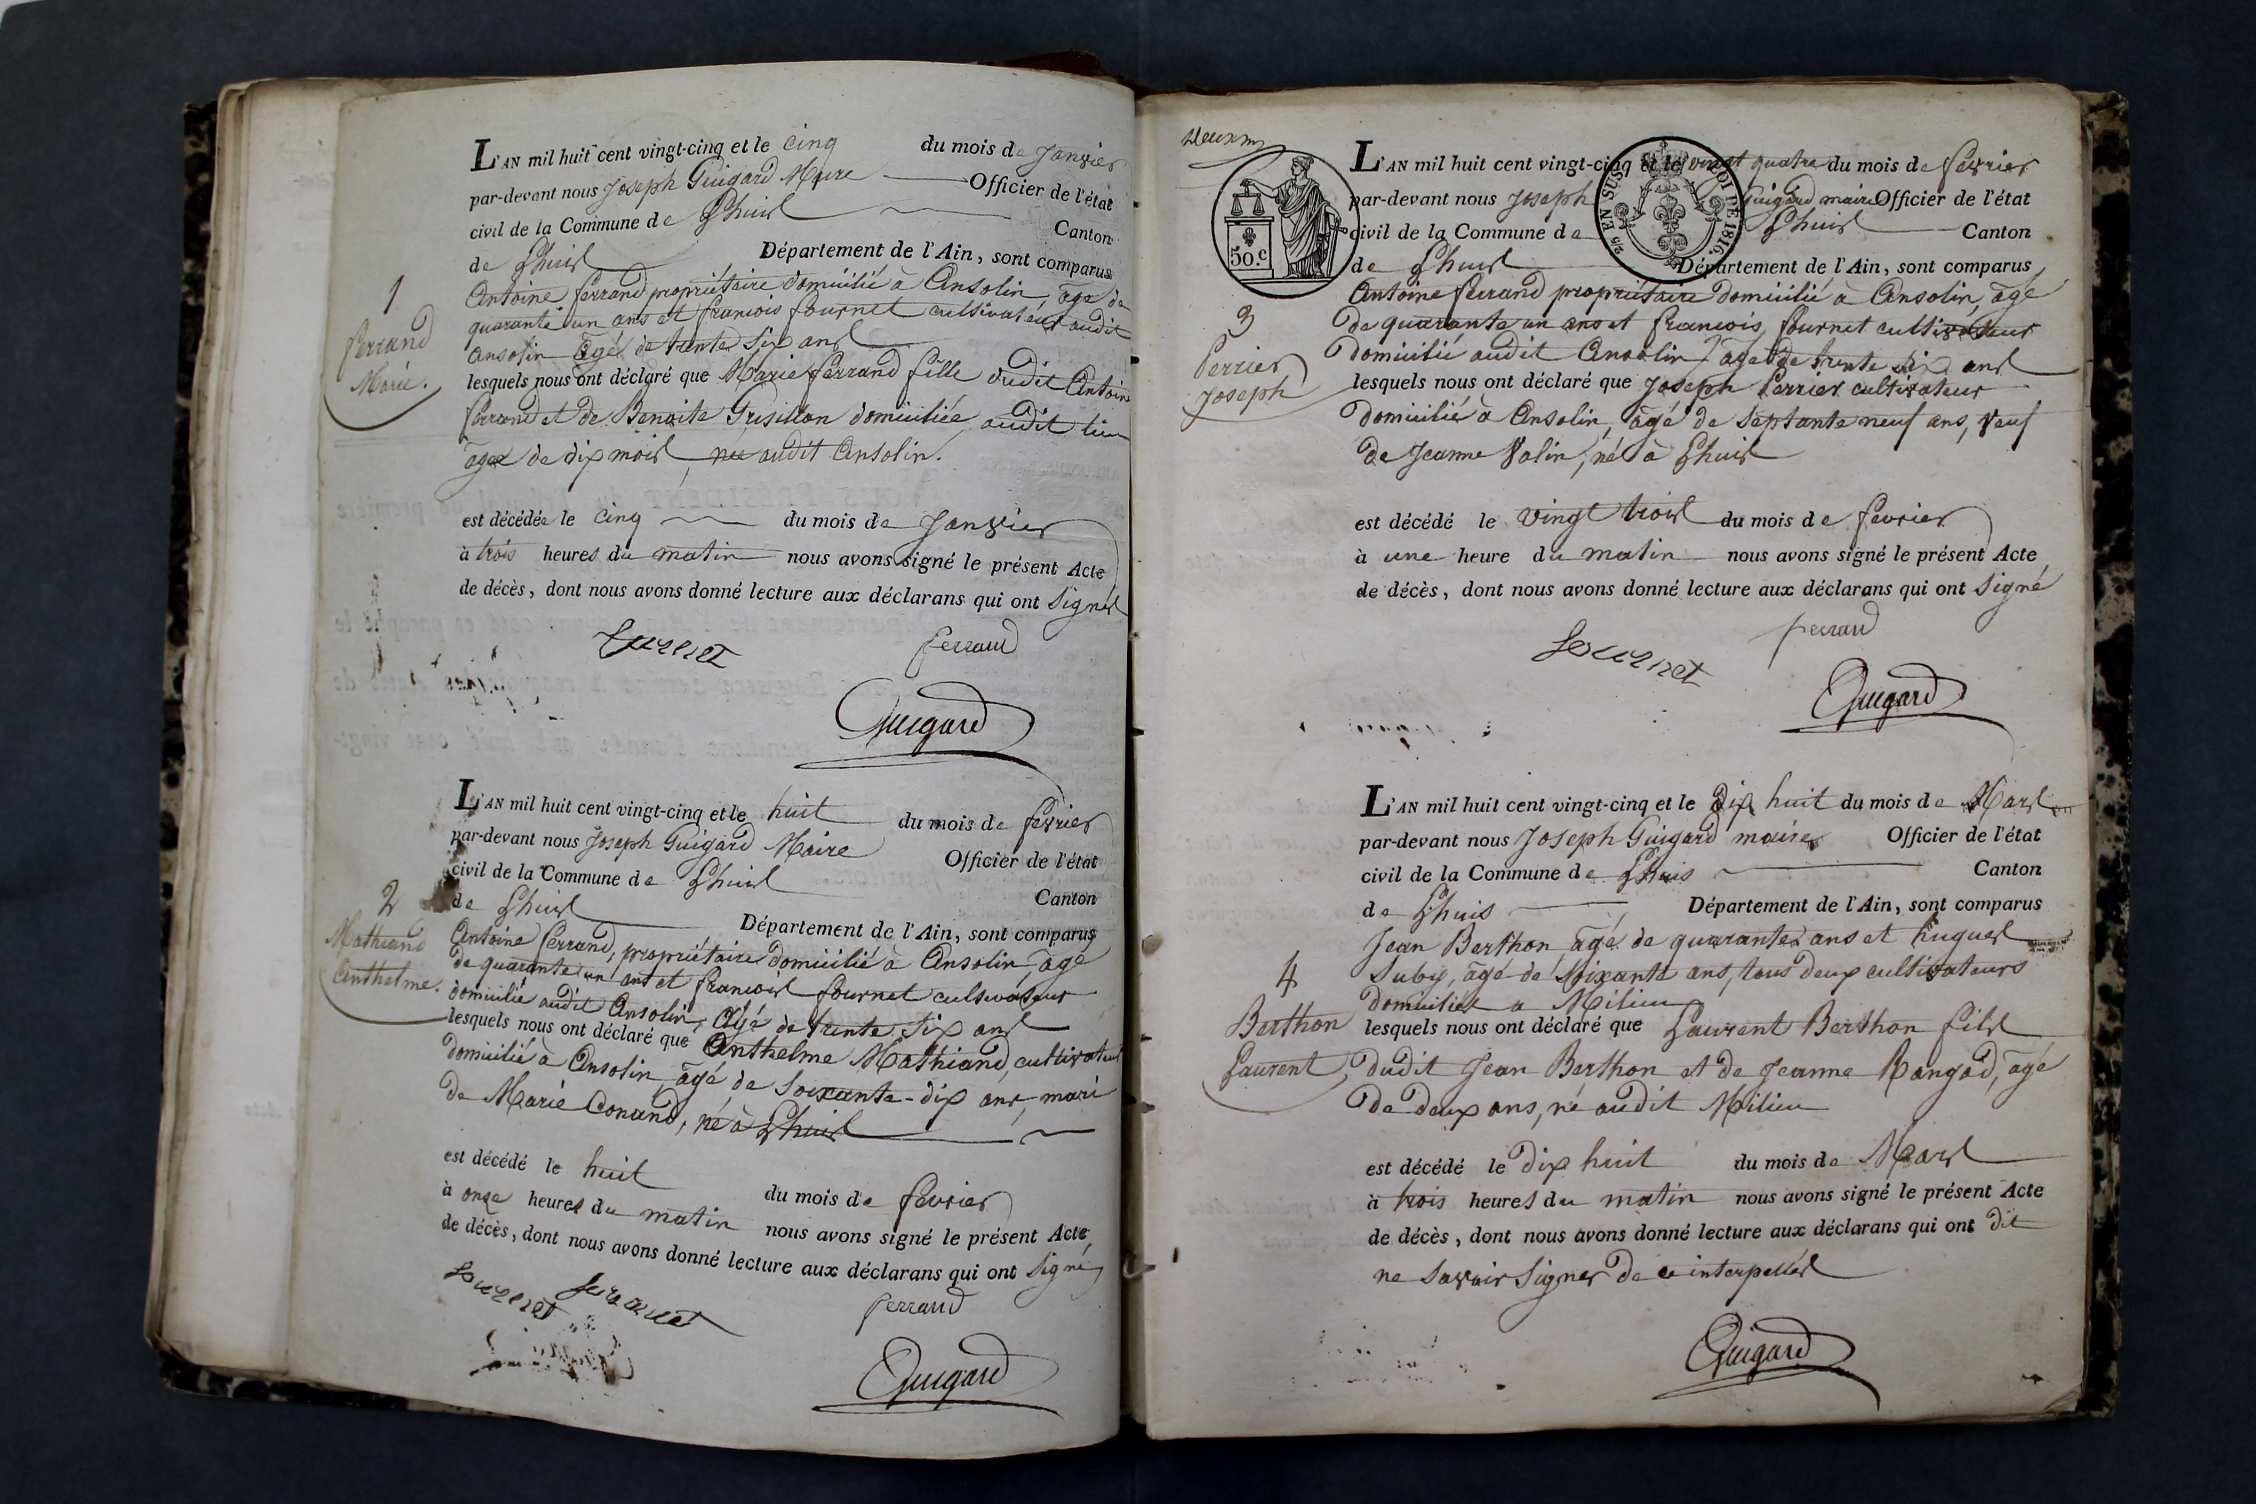 L'AN mil huit cent vingt-cinq et le cinq du mois de Janvier
par-devant nous Joseph Guigard Maire Officier de l'état
civil de la Commune de Lhuis Canton
de Lhuis Département de l'Ain, sont comparus
Antoine ferrand propriétaire domicilié à Ansolin, âgé de
quarante un ans et francois fournet cultivateur audit
ansolin âgé de trente six ans
lesquels nous ont déclaré que Marie ferrand fille dudit Antoine
ferrand et de Benoite Grisillon domiciliée audit lieu
agée de dix mois, née audit Ansolin.
est décédée le cinq du mois de Janvier
à trois heures du matin nous avons signé le présent Acte
de décès, dont nous avons donné lecture aux déclarans qui ont signés
fournet ferrand
Guigard
1
ferrand
Marie.
L'AN mil huit cent vingt-cinq et le huit du mois de fevrier
par-devant nous Joseph Guigard Maire Officier de l'état
civil de la Commune de Lhuis Canton
de Lhuis Département de l'Ain, sont comparus
Antoine ferrand, propriétaire domicilié à Ansolin, agé
de quarante un ans et francois fournet cultivateur
domicilié audit Ansolin, âgé de trente six ans
lesquels nous ont déclaré que Anthelme Mathiand, cultivateur
domicilié à Ansolin, âgé de soixante-dix ans, mari
de Marie Conand, né à Lhuis
est décédé le huit du mois de fevrier
à onze heures du matin nous avons signé le présent Acte
de décès, dont nous avons donné lecture aux déclarans qui ont signé
fournet ferrand
Guigard
2
Mathiand
Anthelme.
Deuxm
50.c
EN SUS ROI DE 1816.
L'AN mil huit cent vingt-cinq et le vingt quatre du mois de février
par-devant nous Joseph Guigard maire Officier de l'état
civil de la Commune de Lhuis Canton
de Lhuis Département de l'Ain, sont comparus
Antoine ferrand propriétaire domicilié à Ansolin, âgé
de quarante un ans et francois fournet cultivateur
domicilié audit Ansolin, âgé de trente six ans
lesquels nous ont déclaré que Joseph Perrier cultivateur
domicilié à Ansolin, âgé de septante neuf ans, veuf
de Jeanne Valin, né à Lhuis
est décédé le vingt trois du mois de fevrier
à une heure du matin nous avons signé le présent Acte
de décès, dont nous avons donné lecture aux déclarans qui ont signé
fournet ferrand
Guigard
3
Perrier
Joseph
L'AN mil huit cent vingt-cinq et le dix huit du mois de Mars
par-devant nous Joseph Guigard maire Officier de l'état
civil de la Commune de Lhuis Canton
de Lhuis Département de l'Ain, sont comparus
Jean Berthon âgé de quarante ans et hugues
Suby, âgé de soixante ans, tous deux cultivateurs
domiciliés a Milieu
lesquels nous ont déclaré que Laurent Berthon fils
dudit Jean Berthon et de Jeanne Rangod, âgé
de deux ans, né audit Milieu
est décédé le dix huit du mois de Mars
à trois heures du matin nous avons signé le présent Acte
de décès, dont nous avons donné lecture aux déclarans qui ont dit
ne savoir signer de ce interpellés
Guigard
4
Berthon
Laurent